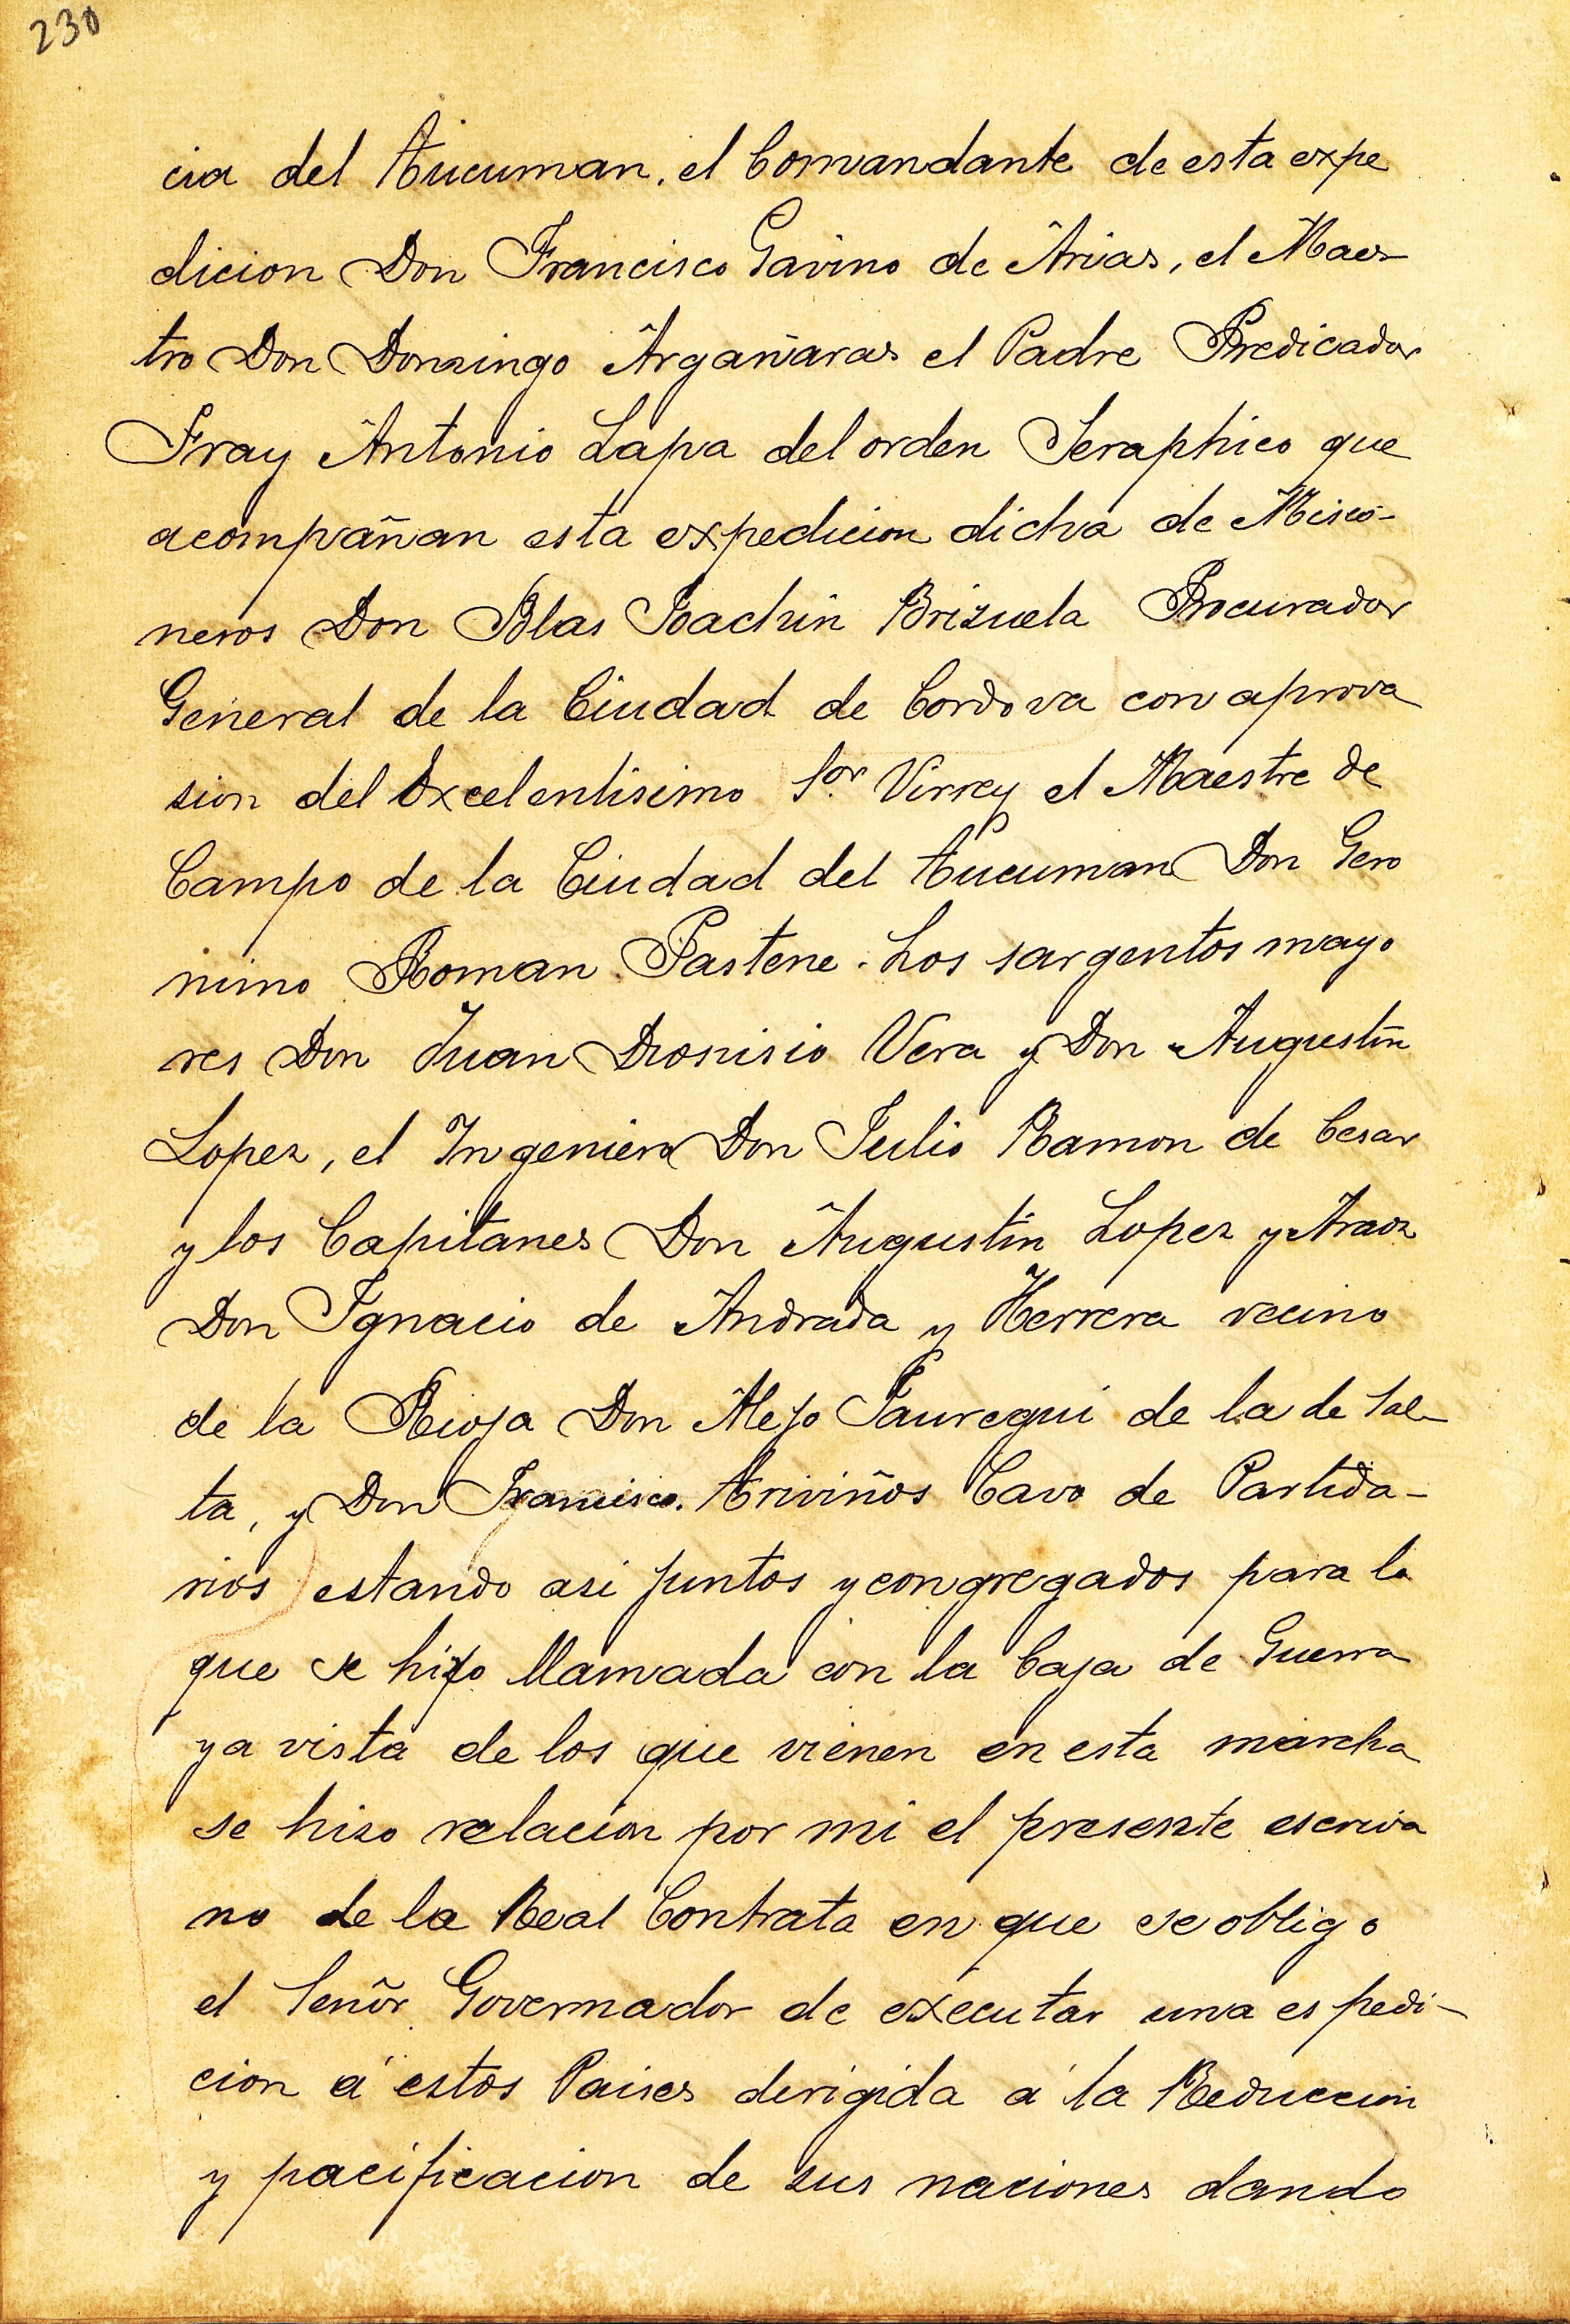 230
cia del Tucuman, el Comandante de esta expe
dicion Don Francisco Gavino de Arias, el Maes-
tro Don Domingo Argañaras el Padre Predicador
Fray Antonio Lapa del orden Seraphico que
acompañan esta expedicion dicha de Miscio-
neros Don Blas Joachin Brizuela Procurador
General de la Ciudad de Cordova con aprova
sion del Excelentisimo Sor. Virrey el Maestre de
Campo de la Ciudad del Tucuman Don Gero
nimo Roman Pastene. Los sargentos mayo
res Don Juan Dionisio Vera y Don Augustin
Lopez, el Ingeniero Don Julio Ramon de Cesar
y los Capitanes Don Augustin Lopez y Araoz
Don Ignacio de Andrada y Herrera vecino
de la Rioja Don Alejo Jauregui de la de Sal-
ta, y Don Francisco Triviños Cavo de Partida-
rios estando asi juntos y congregados para lo
que se hizo llamada con la Caja de Guerra
ya vista de los que vienen en esta marcha
se hizo relacion por mi el presente escriva
no de la Real Contrata en que se obligo
el Señor Governador de executar una espedi-
cion á estos Paises dirigida á la Reduccion
y pacificacion de sus naciones dando